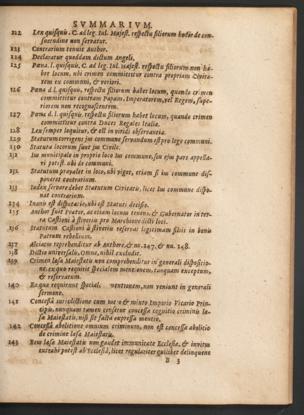 SVMMARIVM.
122 Lex quisquis. C. ad leg. Iul. Maiest. respectu filiorum hodie de con-
suetudine non seruatur.
123 Contrarium tenuit Author.
124 Declaratur quoddam dictum Angeli.
125 Pœna l. quisquis. C. ad leg. Iul. Maiest. respectu filiorum non ha-
bet locum, ubi crimen committitur contra propriam Ciuita-
tem ex communi, & veriori.
126 Pœna d. l. quisquis, respectu filiorum habet locum, quando crimen
committitur contra Papam, Imperatorem, vel Regem, supe-
riorem non recognoscentem.
127 Pœna d. l. quisquis, respectu filiorum habet locum, quando crimen
committitur contra Duces Regales Italiæ.
128 Lex semper loquitur, & est in viridi obseruantia.
129 Statutum corrigens ius commune seruandum est pro lege communi.
130 Statuta locorum sunt ius Ciuile.
131 Ius municipale in proprio loco ius commune, siue eius pars appella-
ri potest ubi de communi.
132 Statutum preualet in loco, ubi viget, etiam si ius commune dis-
poneret contrarium.
133 Iudex seruare debet Statutum Ciuitatis, licet ius commune dispo-
nat contrarium.
134 Inanis est disputatio, ubi est Statuti decisio.
135 Author fuit Prætor, ac etiam locum tenens, & Gubernator in ter-
ra Castioni
136 Statutum Castioni legitimam filiis in bonis
Patrum rebellium.
137 Alciatus reprehenditur ab Authore, & nu. 147. & nu. 148.
138 Dictio vniuersalis, Omne, nihil excludit.
139 Crimen læsæ Maiestatis non comprehenditur in generali dispositio-
ne, ex quo requirit specialem mentionem, tanquam exceptum,
& reseruatum.
140 Ex quæ requirunt specialem mentionem, non veniunt in generali
sermone.
141 Concessa iurisdictione cum mero & mixto Imperio Vicario Prin-
cipis, nunquam tamen censetur concessa cognitio criminis læ-
sæ Maiestatis, nisi sit facta expressa mentio.
142 Concessa abolitione omnium criminum, non est concessa abolitio
de crimine læsæ Maiestatis.
143 Reus læsæ Maiestatis non gaudet immunitate Ecclesiæ, & inuitus
extrahi potest ab Ecclesia, licet regulariter quilibet delinquens
B 3